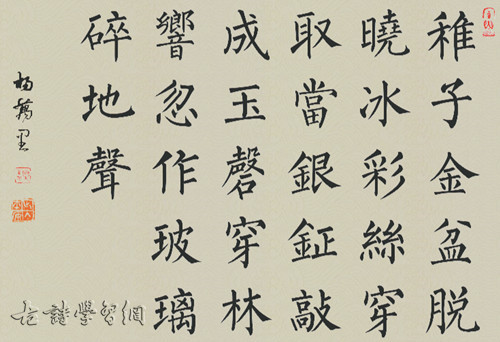 稚子金盆脱
曉冰彩絲穿
取當銀鉦敲
成玉磬穿林
響忽作玻璃
碎地聲
楊萬里
學習網